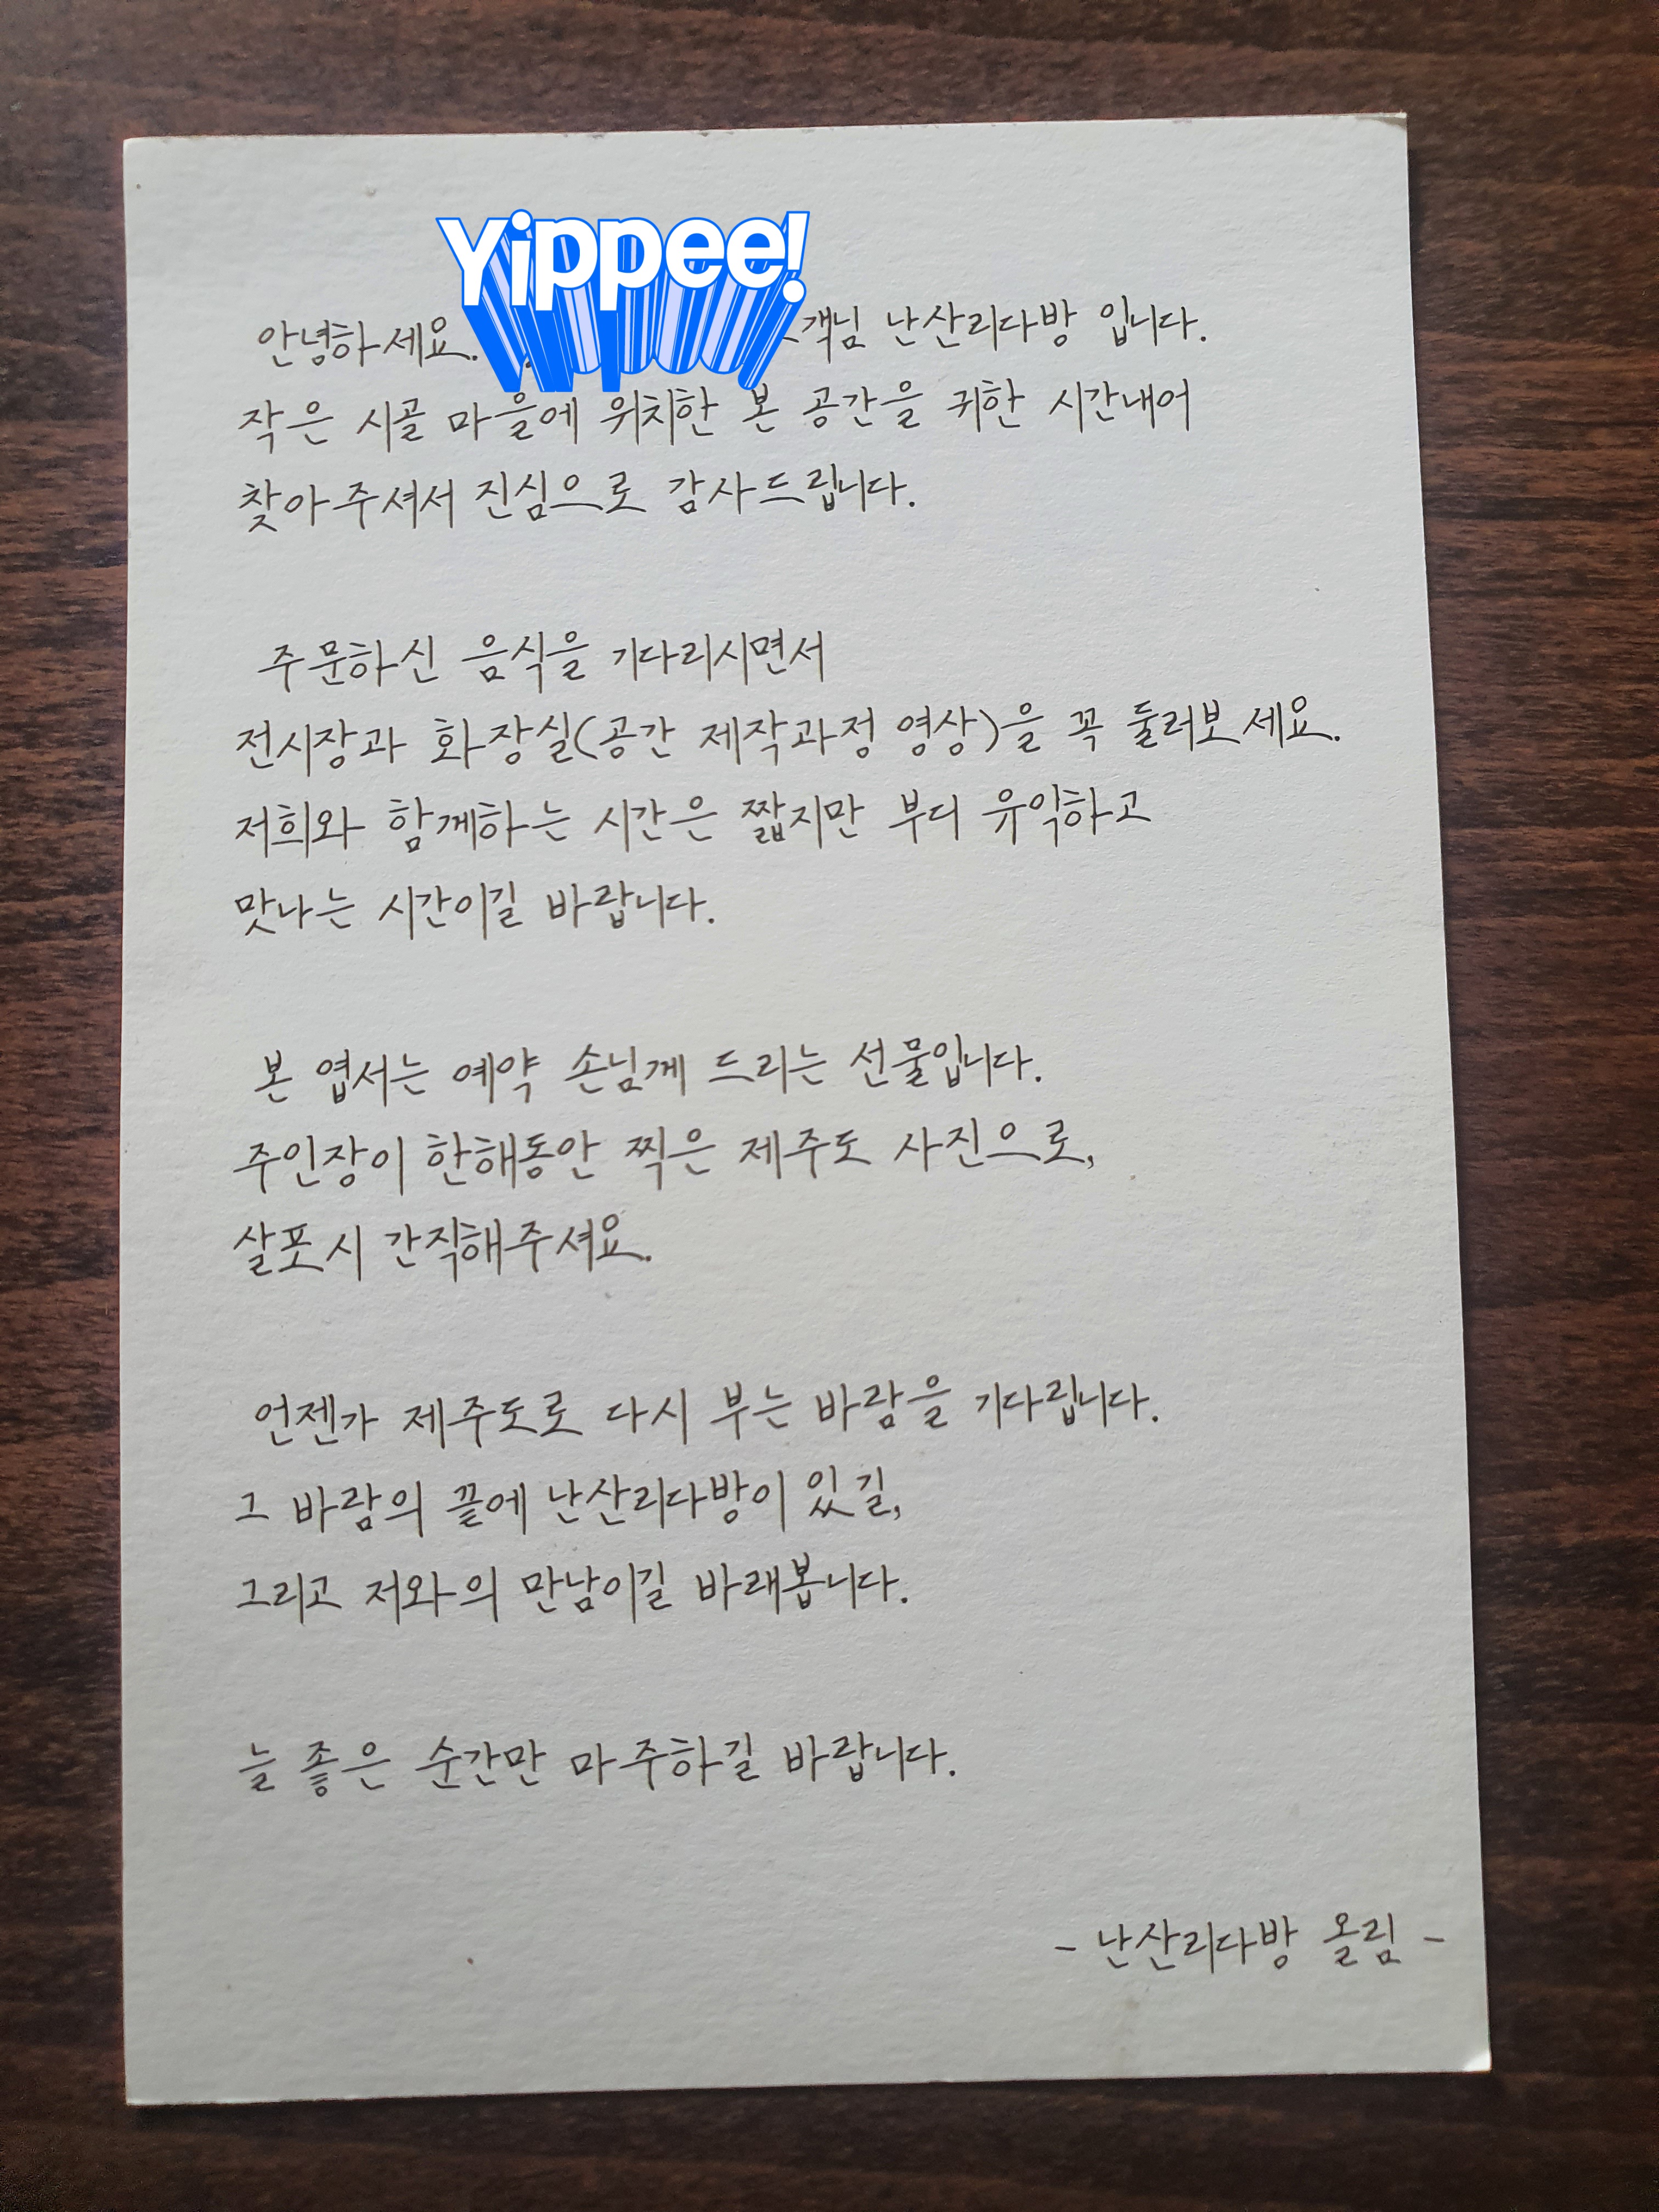 Yippee!
안녕하세요. 객님 난산리다방 입니다.
작은 시골 마을에 위치한 본 공간을 귀한 시간내어
찾아주셔서 진심으로 감사드립니다.
주문하신 음식을 기다리시면서
전시장과 화장실(공간 제작과정 영상)을 꼭 둘러보세요.
저희와 함께하는 시간은 짧지만 부디 유익하고
맛나는 시간이길 바랍니다.
본 엽서는 예약 손님께 드리는 선물입니다.
주인장이 한해동안 찍은 제주도 사진으로,
살포시 간직해주셔요.
언젠가 제주도로 다시 부는 바람을 기다립니다.
그 바람의 끝에 난산리다방이 있길,
그리고 저와의 만남이길 바래봅니다.
늘 좋은 순간만 마주하길 바랍니다.
- 난산리다방 올림 -